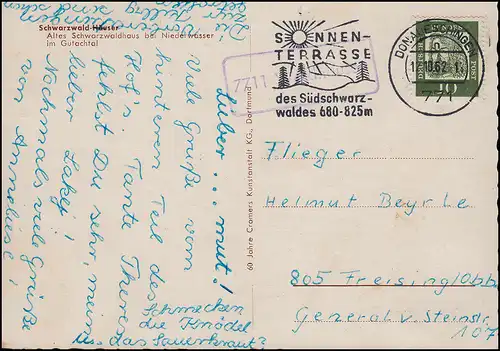 Schwarzwald-Häuser
Altes Schwarzwaldhaus bei Niederwasser
im Gutachtal
Lieber ... mut!
Viele Grüße vom
hinteren Teil des
Hof's. Tante Theres
fehlst Du sehr, mein
lieber Lakej!
Nochmals viele Grüße
von Anneliese!
Schmecken
die Knödel
u. das Sauerkraut?
Die
60 Jahre Cramers Kunstanstalt KG., Dortmund
SONNEN-
TERRASSE
des Südschwarz-
waldes 680-825m
7711
DONAUESCHINGEN
771
10
Flieger
Helmut Beyrle
805 Freising/Obb.
General v. Steinstr
107